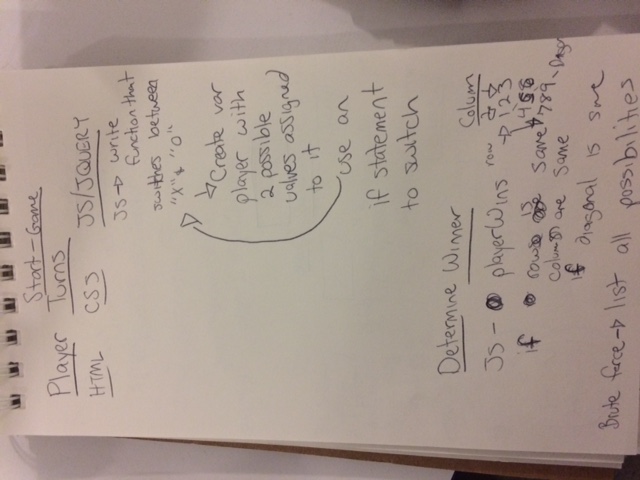 Start-Game
Player Turns
HTML CSS JS/JQUERY
JS → write
function that
switches between
"X" & "O"
↳ Create var
player with
2 possible
values assigned
to it
use an
if statement
to switch
Determine Winner
Column
JS - playerWins row → 123
if rows is same 456
columns are same 789
if diagonal is same
Brute force → list all possibilities